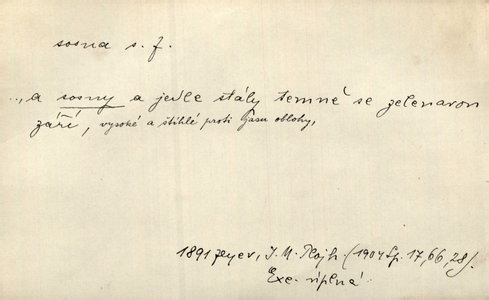 sosna s. f.
.., a sosny a jedle stály temně se zelenavou
září, vysoké a štíhlé proti jasu oblohy,
1891 Zeyer, J. M. Plojh. (1904 Sp. 17, 66, 28).
Exc. úplná